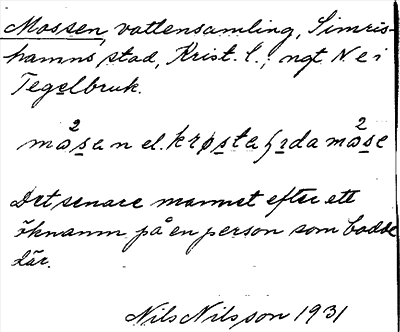 Mossen, vattensamling, Simris-
hamns stad, Krist. l.; ngt N e i
Tegelbruk.
mo²san el.
Det senare namnet efter ett
öknamn på en person som bodde
där.
Nils Nilsson 1931